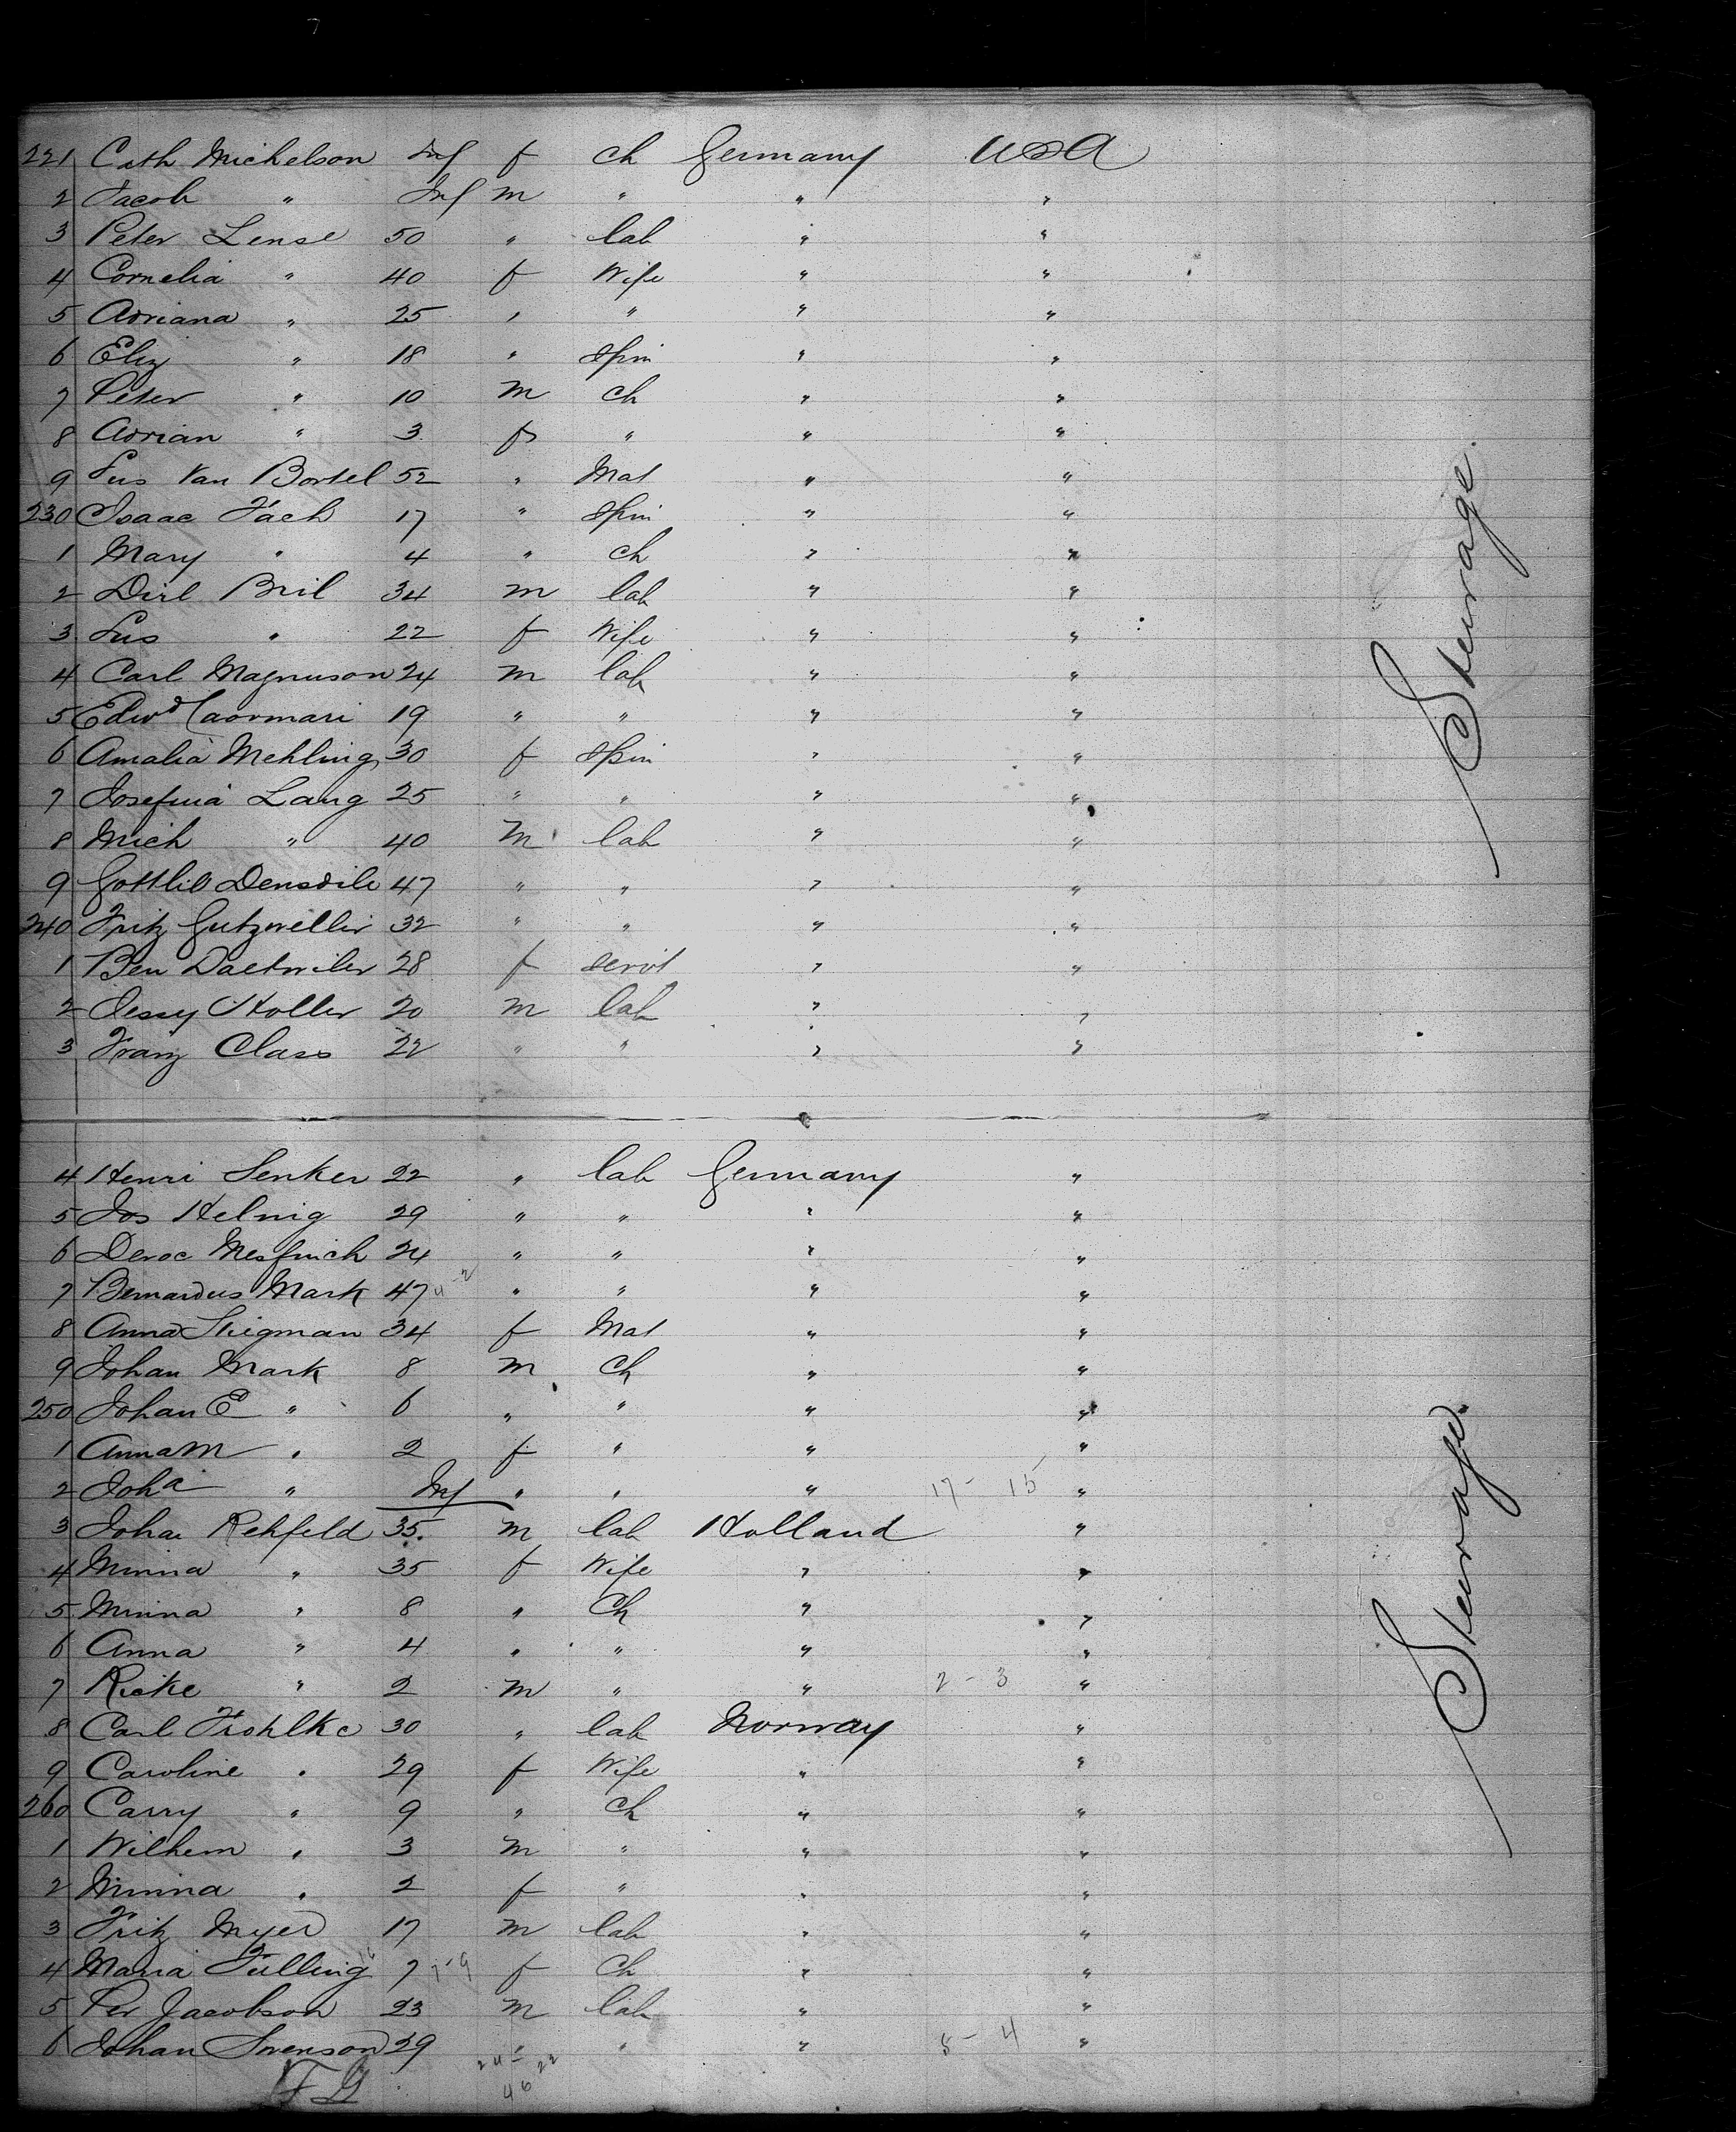 221 Cath Michelson Inf f ch Germany USA
2 Jacob " Inf m " " "
3 Peter Lense 50 " lab " "
4 Cornelia " 40 f Wife " "
5 Adriana " 25 " " " "
6 Eliz " 18 " Spin " "
7 Peter " 10 m ch " "
8 Adrian " 3 f " " "
9 Van Bortel 52 " Mat " "
230 Isaac Fach 17 " Spin " "
1 Mary " 4 " ch " "
2 Dirl Bril 34 m lab " "
3 " 22 f Wife " "
4 Carl Magnuson 24 m lab " "
5 Edwd 19 " " " "
6 Amalia Mehling 30 f Spin " "
7 Josefina Lang 25 " " " "
8 Mich " 40 m lab " "
9 Gottlib Densdile 47 " " " "
240 Fritz Gutzwiller 32 " " " "
1 Ben Daetwiler 28 f servt " "
2 Jessy Holler 20 m lab " "
3 Franz Class 22 " " " "
Steerage.
4 Henri Senker 22 " lab Germany "
5 Jos Helnig 29 " " " "
6 24 " " " "
7 Bernardus Mark 47 " " " "
8 Anna Stiegman 34 f Mat " "
9 Johan Mark 8 m Ch " "
250 Johan E " 6 " " " "
1 Anna M " 2 f " " "
2 Joha " Inf " " " 17 - 15 "
3 Joha Rehfeld 35 m lab Holland "
4 Minna " 35 f Wife " "
5 Minna " 8 " Ch " "
6 Anna " 4 " " " "
7 Rieke " 2 m " " 2 - 3 "
8 Carl Frohlke 30 " lab Norway "
9 Caroline " 29 f Wife " "
260 Carry " 9 " Ch " "
1 Wilhem " 3 m " " "
2 Minna " 2 f " " "
3 Fritz Myer 17 m lab " "
4 Maria Fulling 7 f Ch " "
5 Per Jacobson 23 m lab " "
6 Johan Svenson 29 " " " 5 - 4 "
24 - 22
46
Steerage.